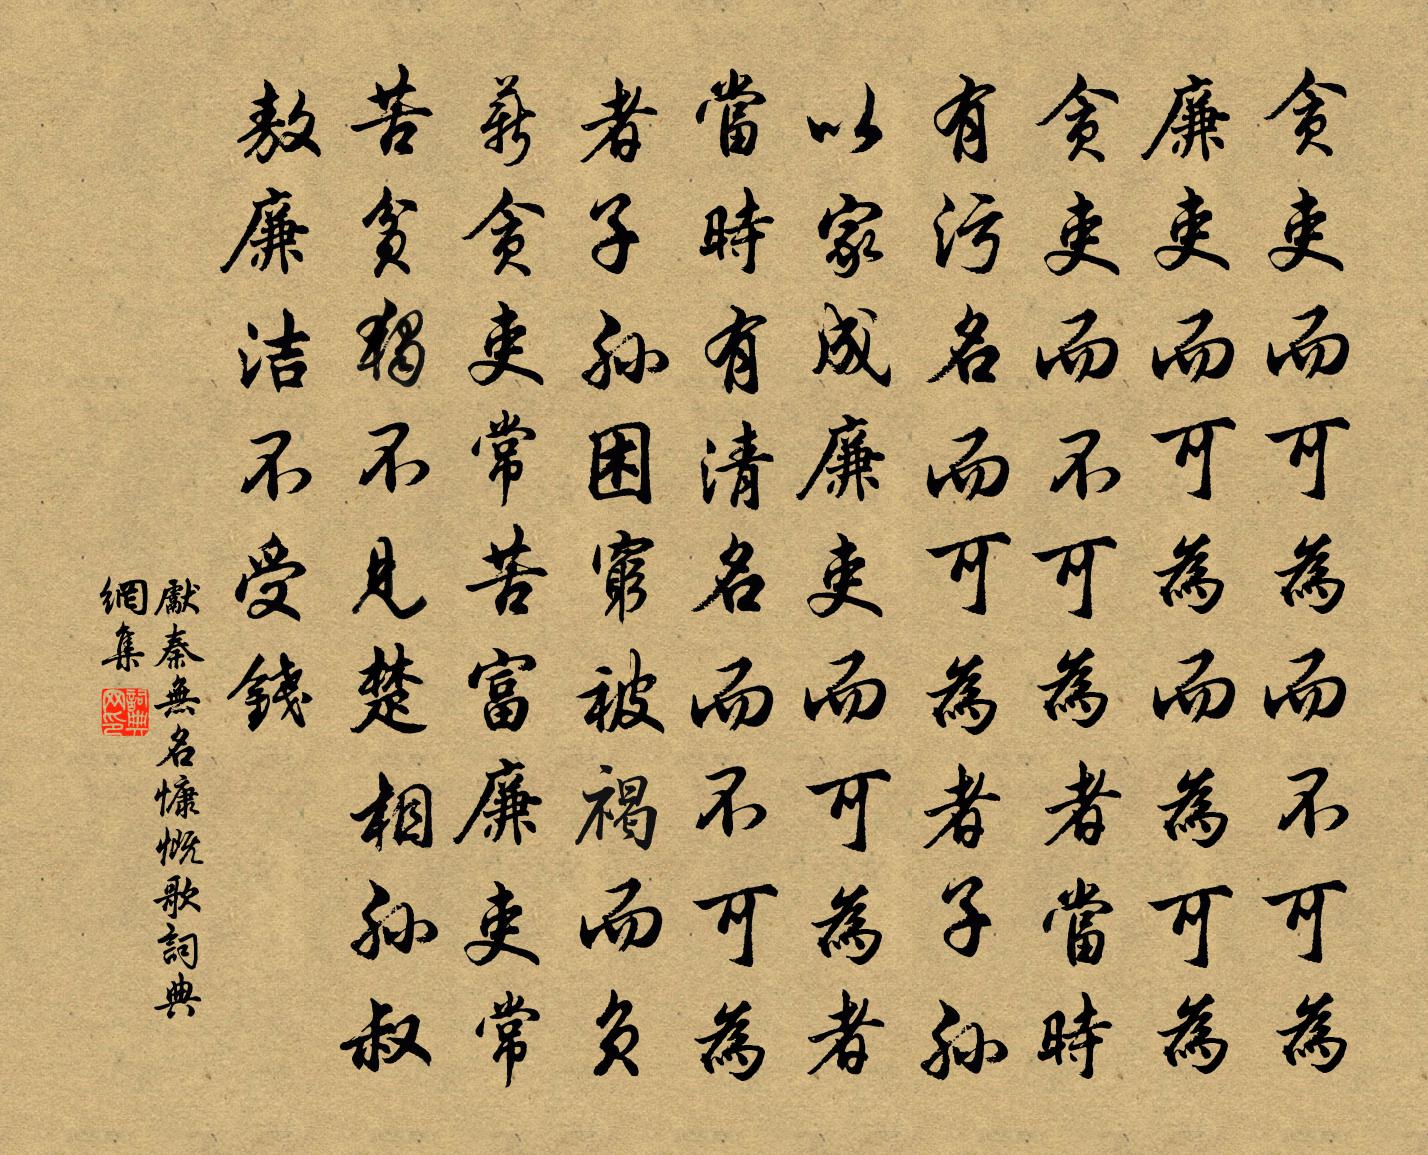 貪吏而可為而不可為
廉吏而可為而為可為
貪吏而不可為者當時
有污名而可為者子孫
以家成廉吏而可為者
當時有清名而不可為
者子孫困窮被褐而負
薪貪吏常苦富廉吏常
苦貧獨不見楚相孫叔
敖廉洁不受錢
獻秦無名慷慨歌詞典
網集
詞典
网印